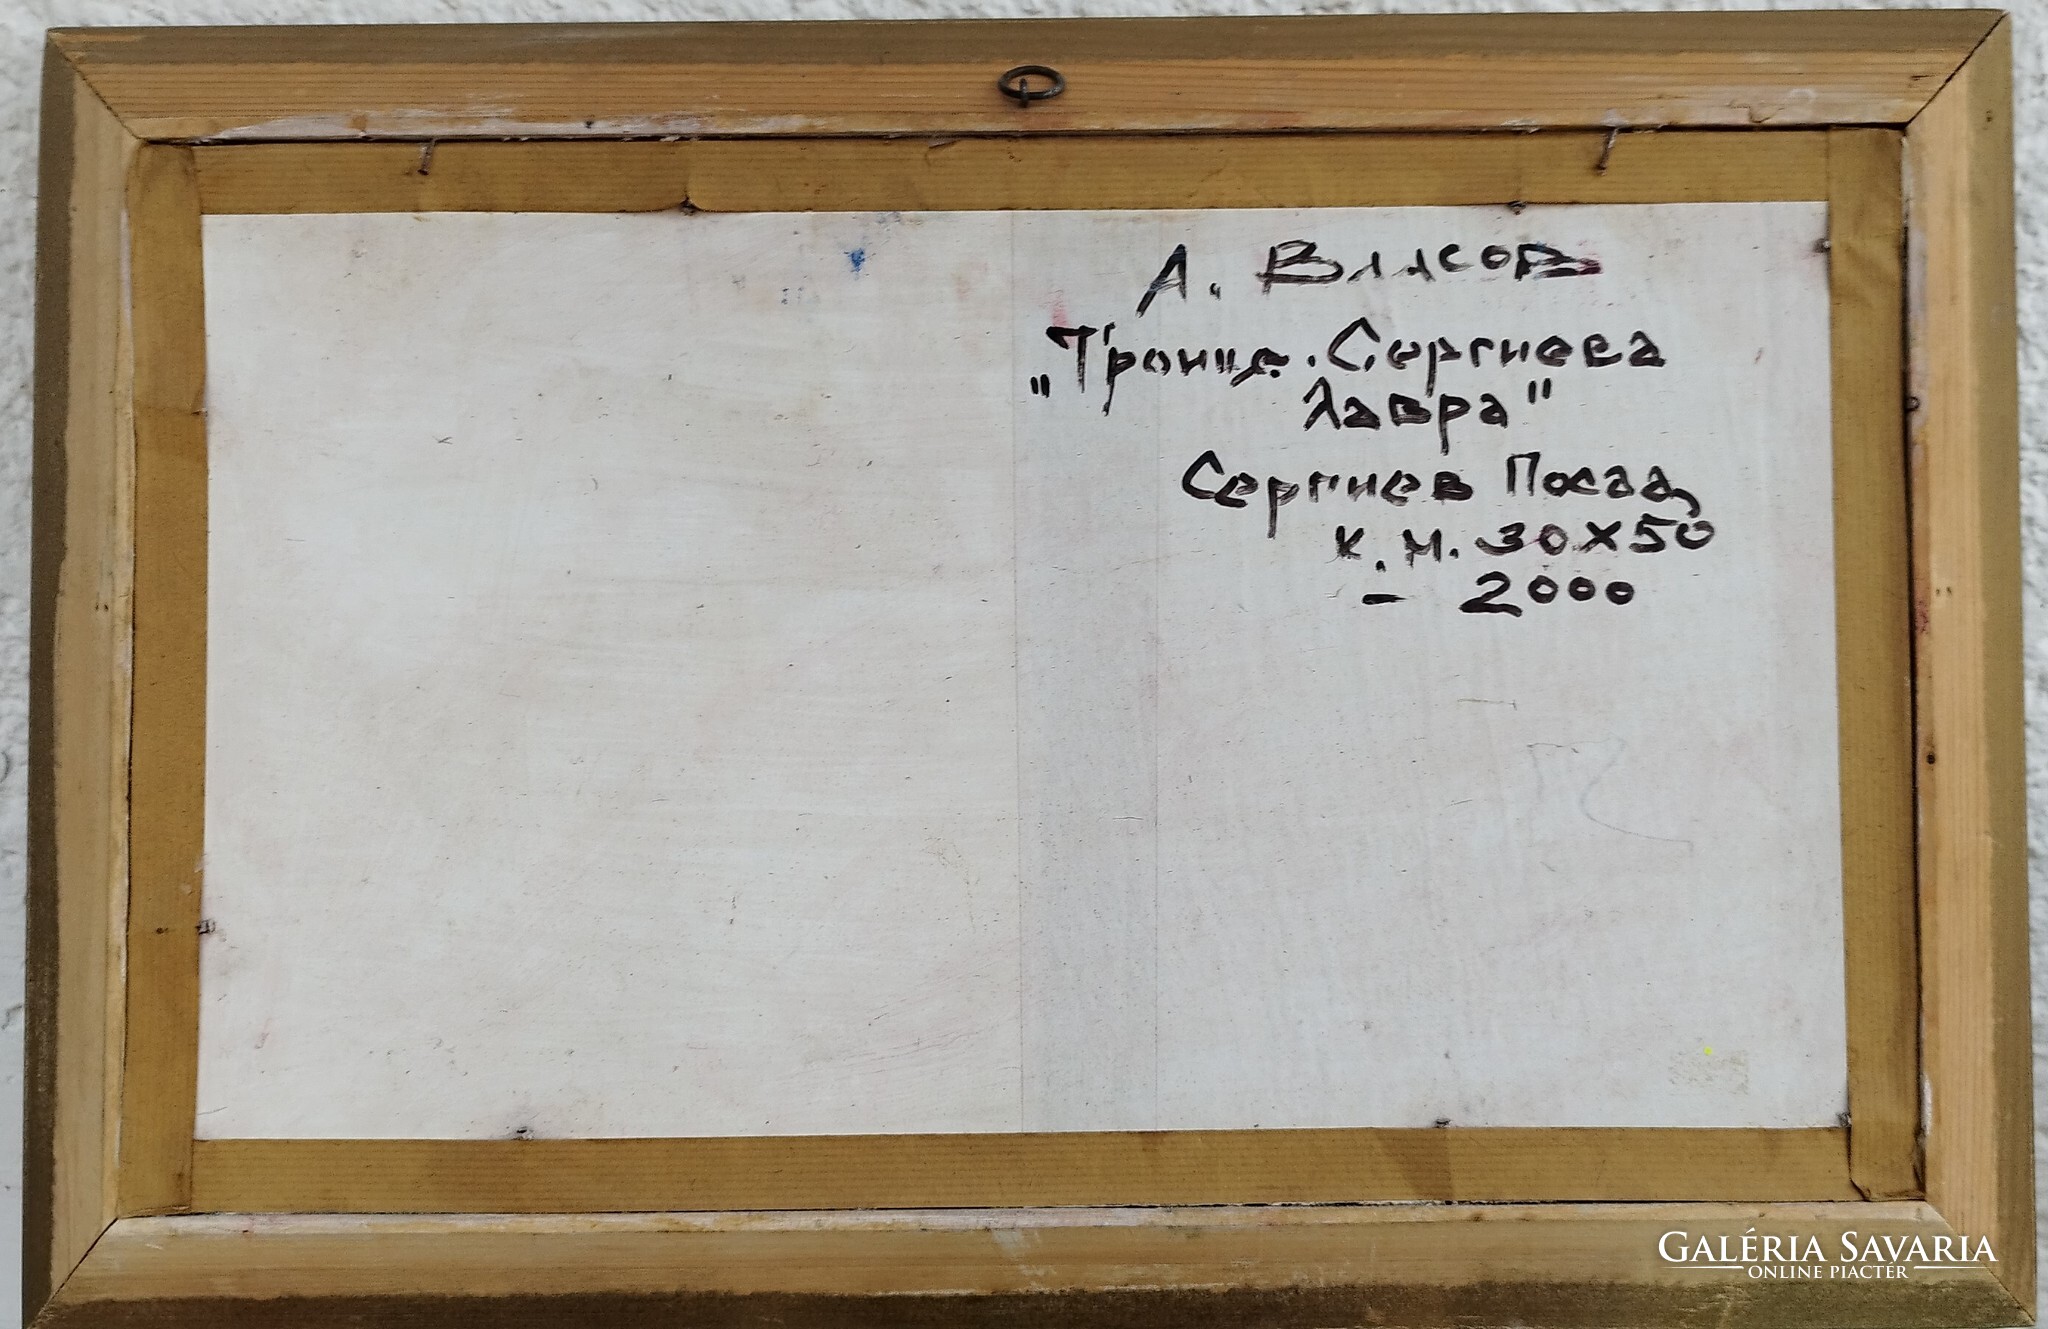 А. Власов
"Троице-Сергиева
Лавра"
Сергиев Посад
к.м. 30x50
- 2000
GALÉRIA SAVARIA
ONLINE PIACTÉR